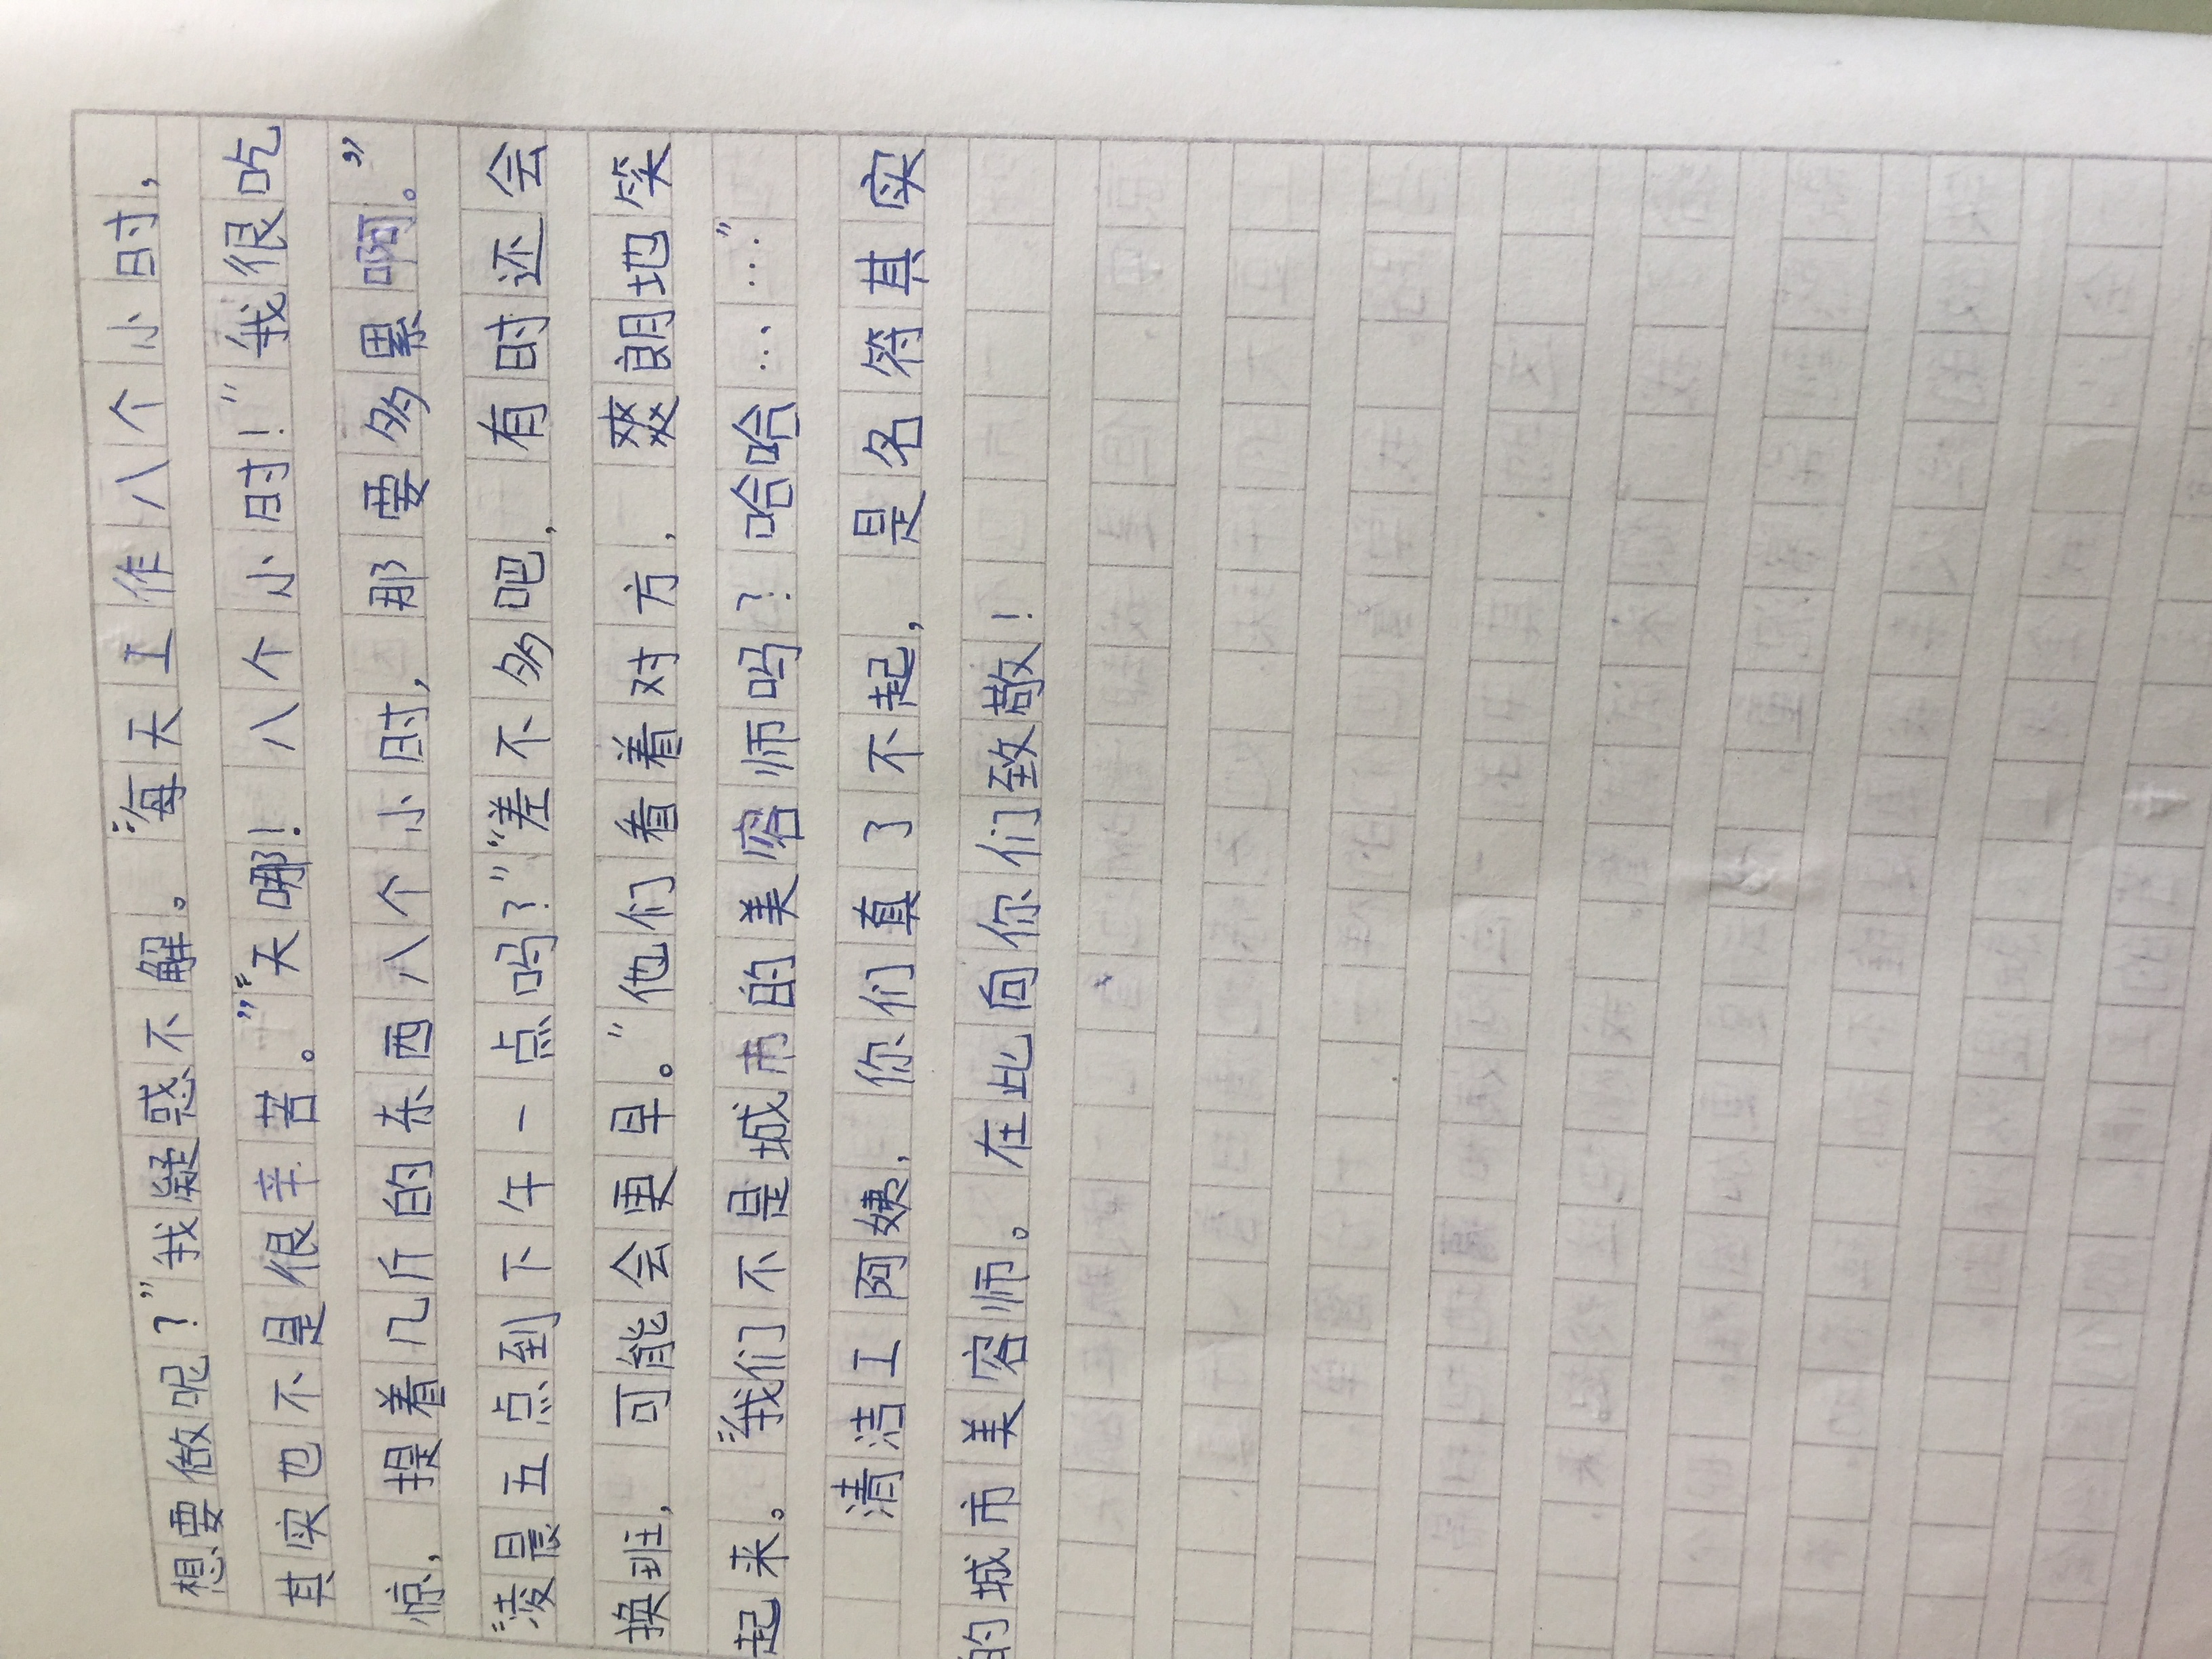 想要做呢？”我疑惑不解。“每天工作八个小时，
其实也不是很辛苦。”“天哪！八个小时！”我很吃
惊，提着几斤的东西八个小时，那要多累啊。”
“凌晨五点到下午一点吗？”“差不多吧，有时还会
换班，可能会更早。”他们看着对方，爽朗地笑
起来。“我们不是城市的美容师吗？哈哈……”
清洁工阿姨，你们真了不起，是名符其实
的城市美容师。在此向你们致敬！